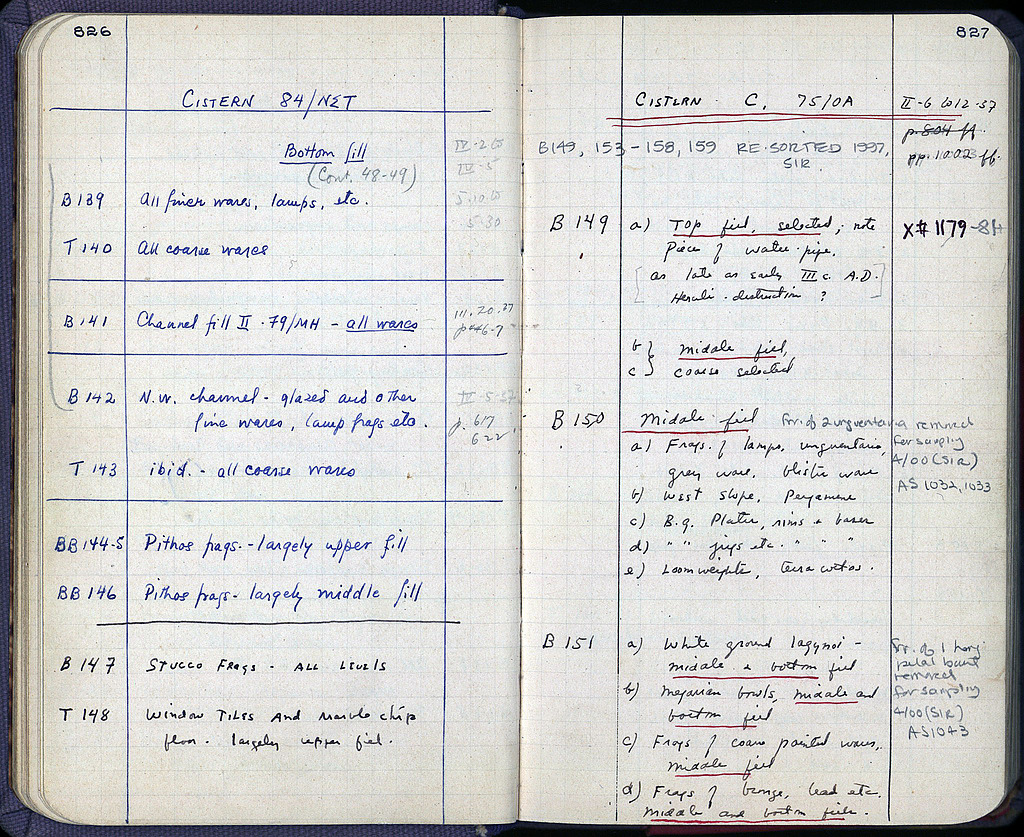 826
CISTERN 84/NΣT
Bottom fill
(Cont. 48-49)
IV-2
IV-5
B 139 All finer wares, lamps, etc.
5.10
5-30
T 140 All coarse wares
B 141 Channel fill II · 79/MH - all wares
III. 20.37
p 446-7
B 142 N.W. channel - glazed and other
fine wares, lamp frags etc.
p. 617
622
T 143 ibid. - all coarse wares
BB 144-5 Pithos frags. - largely upper fill
BB 146 Pithos frags - largely middle fill
B 147 STUCCO FRAGS - ALL LEVELS
T 148 WINDOW TILES AND Marble chip
floor. largely upper fill.
827
CISTERN C, 75/OA
II-6 to 12-37
p. 804 ff.
pp. 1002 ff.
B149, 153-158, 159 RE-SORTED 1997,
SIR
B 149 a) Top fill, selected; note
Piece of water-pipe.
X# 1179-84
[as late as early III c. A.D.]
Heruli-destruction ?
b } middle fill,
c } coarse selected
B 150 Middle fill
Frr. of 2 unguentaria removed
for sampling
4/00 (SIR)
AS 1032, 1033
a) Frags. of lamps, unguentaria,
grey ware, blister ware
b) West slope, Pergamene
c) B.g. Plates, rims + bases
d) " " jugs etc. " " "
e) Loomweights, terra cottas.
B 151 a) White ground lagynoi -
middle & bottom fill
b) Megarian bowls, middle and
bottom fill
Frr. of 1 long
petal bowl
removed
for sampling
4/00 (SIR)
AS 1043
c) Frags of coarse painted wares,
middle fill
d) Frags of bronze, lead etc.
middle and bottom fills.